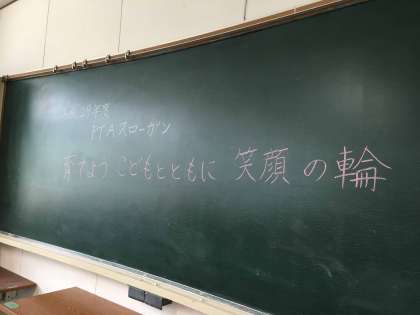 平成29年度
PTAスローガン
育てよう こどもとともに 笑顔の輪